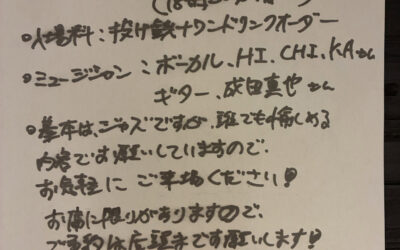 ○入場料：投げ銭+ワンドリンクオーダー
○ミュージシャン：ボーカル、HI、CHI、KAさん
ギター、成田真也さん
○基本は、ジャズですが、誰でも愉しめる
内容でお願いしていますので、
お気軽に ご来場ください!
お席に限りがありますので、
ご予約は店頭までお願いします!